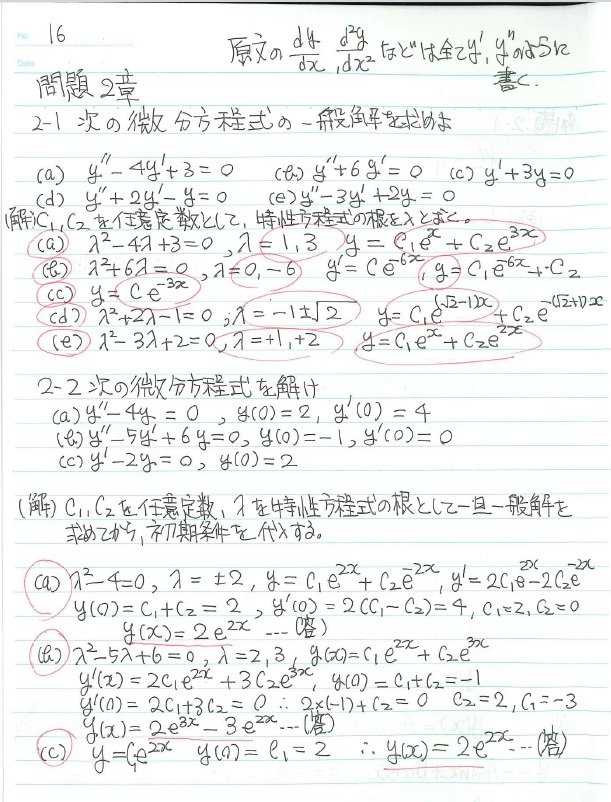 No. 16
Date
原文の dy/dx, d²y/dx² などは全てy', y''のように
書く.
問題 2章
2-1 次の微分方程式の一般解を求めよ
(a) y''-4y'+3=0 (b) y''+6y'=0 (c) y'+3y=0
(d) y''+2y'-y=0 (e) y''-3y'+2y=0
(解) C₁, C₂を任意定数として, 特性方程式の根をλとおく。
(a) λ²-4λ+3=0, λ=1,3 y=C₁e^x+C₂e^{3x}
(b) λ²+6λ=0, λ=0,-6 y'=Ce^{-6x}, y=C₁e^{-6x}+C₂
(c) y=Ce^{-3x}
(d) λ²+2λ-1=0, λ=-1±√2 y=C₁e^{(√2-1)x}+C₂e^{-(√2+1)x}
(e) λ²-3λ+2=0, λ=+1,+2 y=C₁e^x+C₂e^{2x}
2-2 次の微分方程式を解け
(a) y''-4y=0, y(0)=2, y'(0)=4
(b) y''-5y'+6y=0, y(0)=-1, y'(0)=0
(c) y'-2y=0, y(0)=2
(解) C₁, C₂を任意定数, λを特性方程式の根として一旦一般解を
求めてから, 初期条件を代入する。
(a) λ²-4=0, λ=±2, y=C₁e^{2x}+C₂e^{-2x}, y'=2C₁e^{2x}-2C₂e^{-2x}
y(0)=C₁+C₂=2, y'(0)=2(C₁-C₂)=4, C₁=2, C₂=0
y(x)=2e^{2x} ---(答)
(b) λ²-5λ+6=0, λ=2,3, y(x)=C₁e^{2x}+C₂e^{3x}
y'(x)=2C₁e^{2x}+3C₂e^{3x}, y(0)=C₁+C₂=-1
y'(0)=2C₁+3C₂=0 ∴ 2×(-1)+C₂=0 C₂=2, C₁=-3
y(x)=2e^{3x}-3e^{2x} ---(答)
(c) y=C₁e^{2x} y(0)=C₁=2 ∴ y(x)=2e^{2x} ---(答)